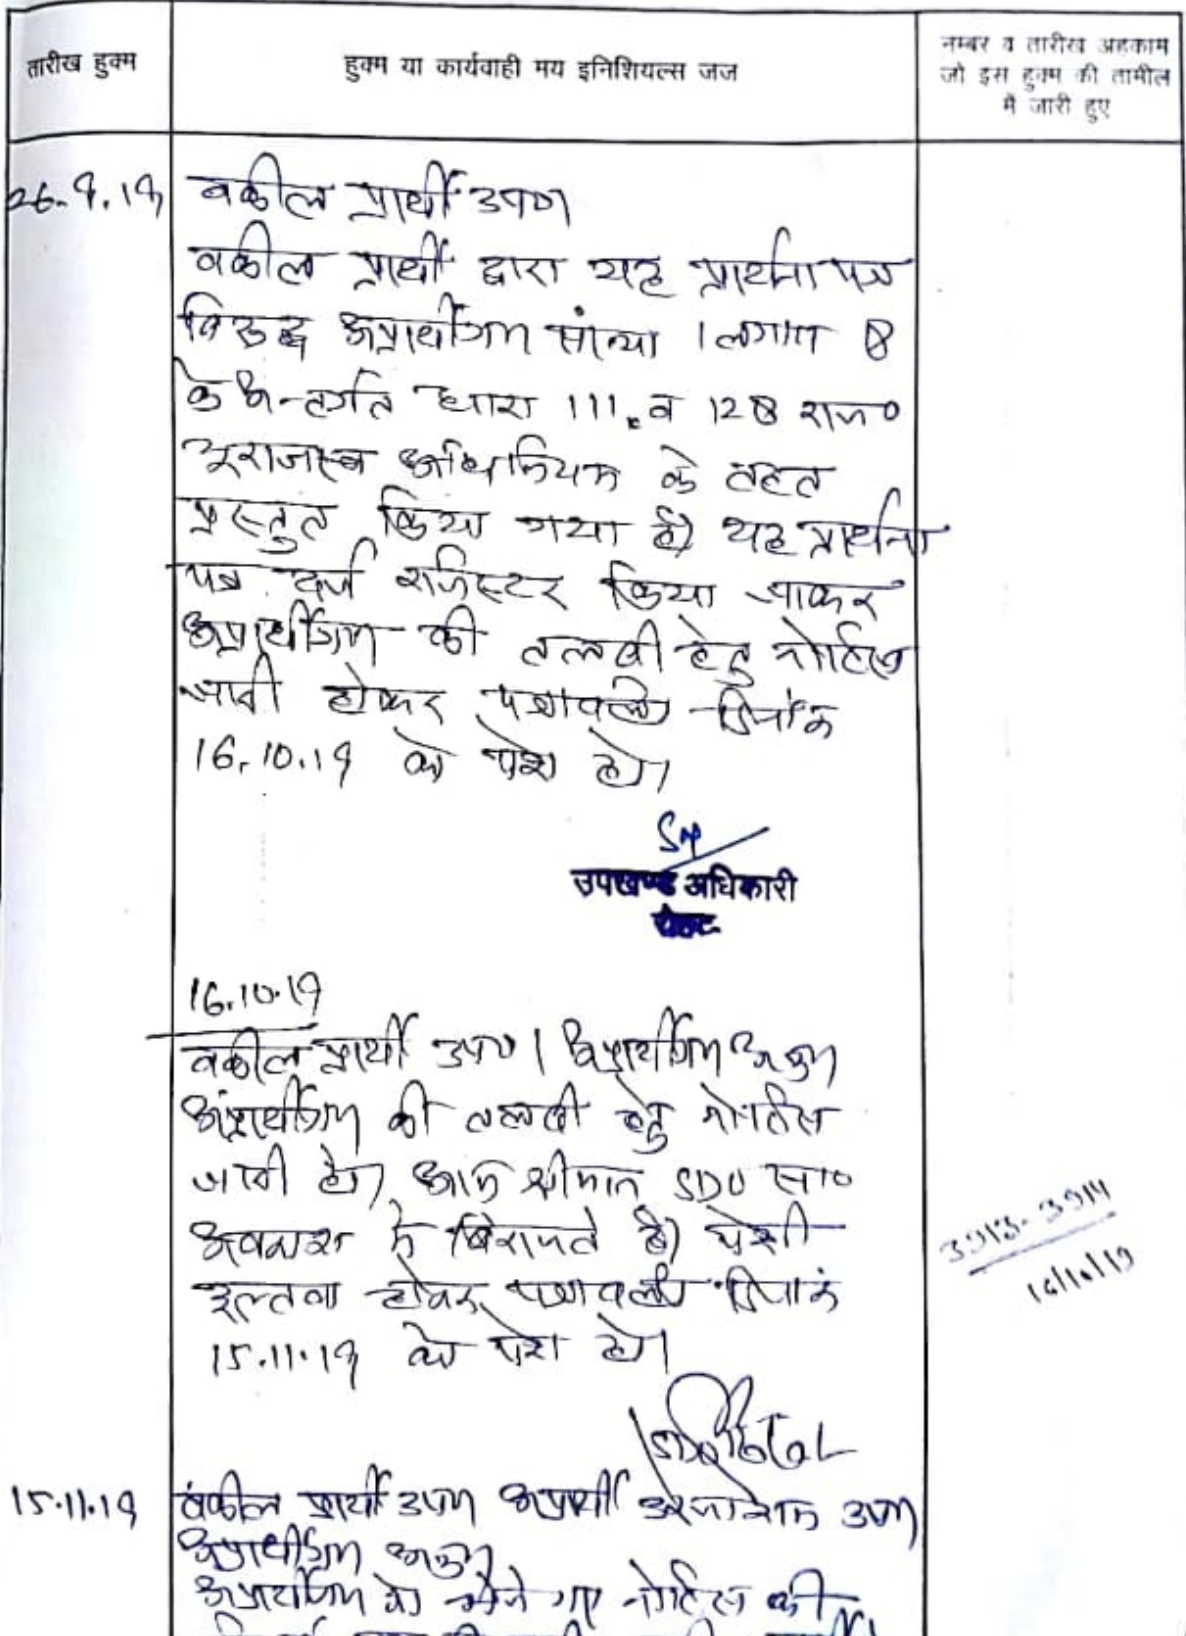 तारीख हुक्म
हुक्म या कार्यवाही मय इनिशियल्स जज
नम्बर व तारीख अहकाम
जो इस हुक्म की तामील
में जारी हुए
26.9.19
वकील प्रार्थी उप०
वकील प्रार्थी द्वारा यह प्रार्थना पत्र
विरुद्ध अप्रार्थीगण संख्या 1 लगात 8
के अन्तर्गत धारा 111 व 128 राज०
भूराजस्व अधिनियम के तहत
प्रस्तुत किया गया है। यह प्रार्थना
पत्र दर्ज रजिस्टर किया जाकर
अप्रार्थीगण की तलबी हेतु नोटिस
जारी होकर पत्रावली दिनांक
16.10.19 को पेश हो।
उपखण्ड अधिकारी
16.10.19
वकील प्रार्थी उप० । अप्रार्थीगण अनु०
अप्रार्थीगण की तलबी हेतु नोटिस
जारी हो। आज श्रीमान SDO सा०
अवकाश पे बिराजते है। पेशी
इल्तवा होकर पत्रावली दिनांक
15.11.19 को पेश हो।
3913-3914
16/10/19
15.11.19
वकील प्रार्थी उप० अप्रार्थी उप०
अप्रार्थीगण अनु०
अप्रार्थीगण को भेजे गए नोटिस की